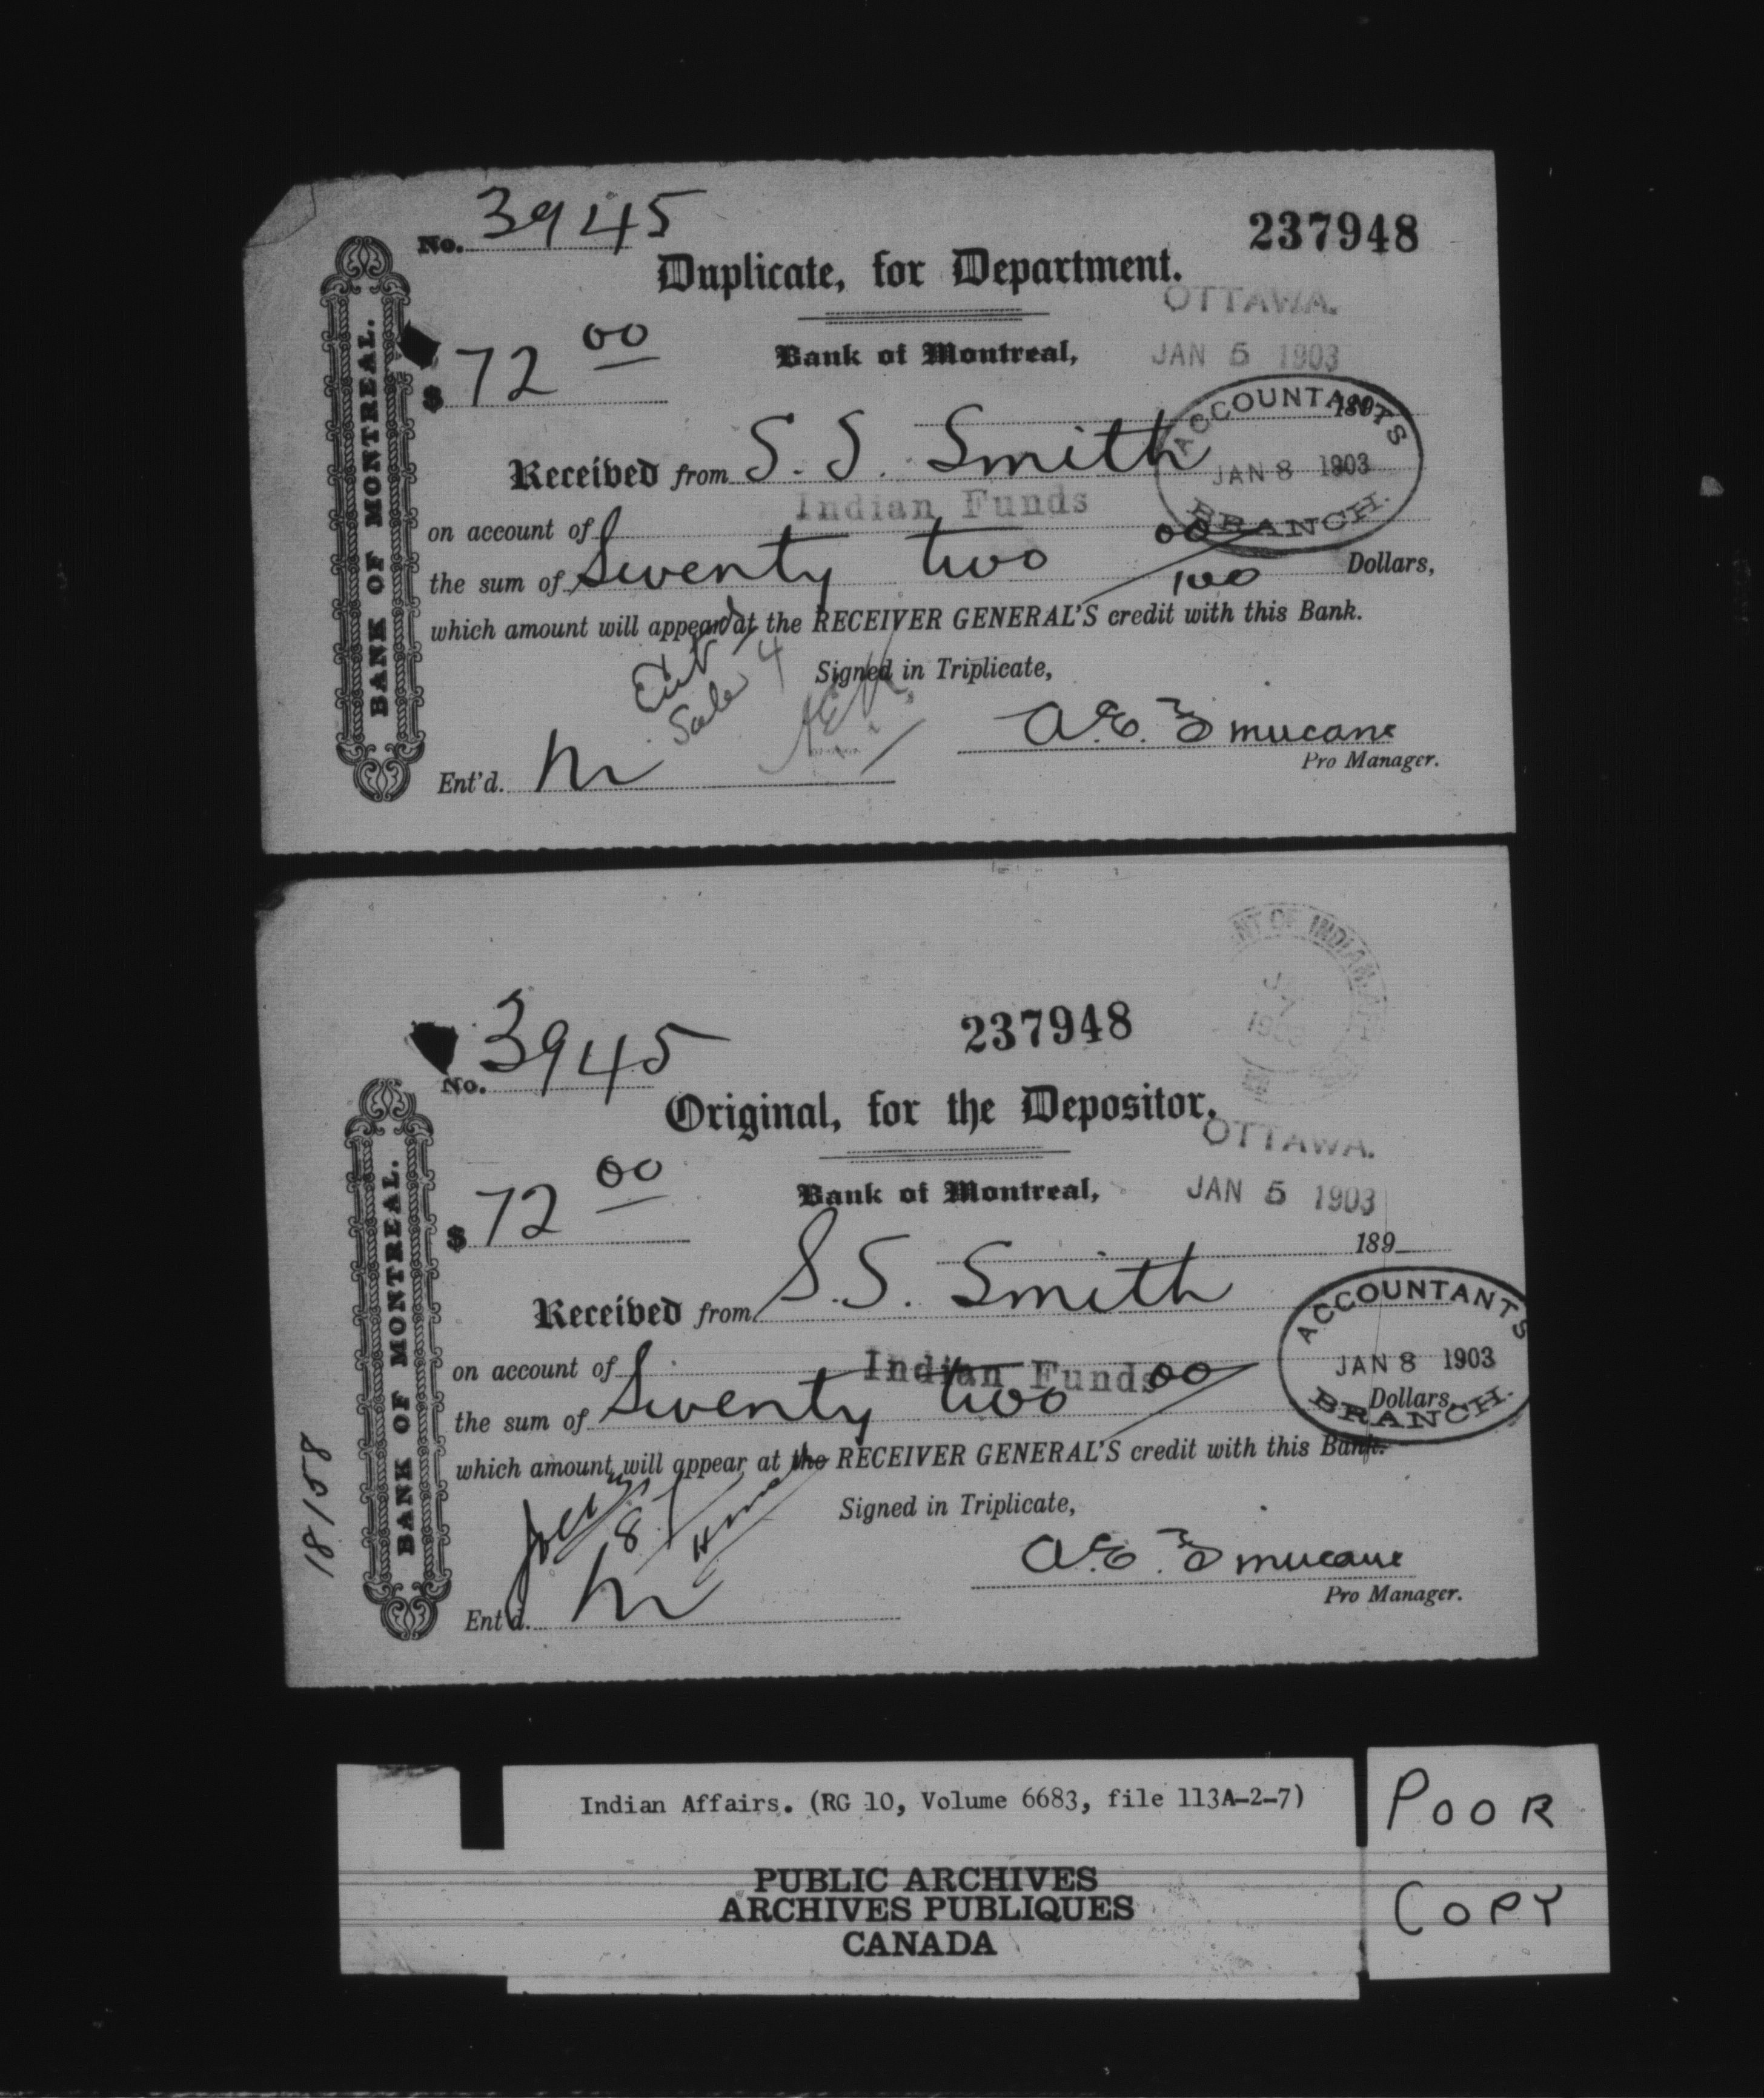 No. 3945
237948
Duplicate, for Department.
OTTAWA.
$ 72 00
Bank of Montreal,
JAN 5 1903
189
ACCOUNTANTS
JAN 8 1903
BRANCH.
Received from S. S. Smith
Indian Funds
on account of
the sum of Seventy two 00/100 Dollars,
which amount will appear at the RECEIVER GENERAL'S credit with this Bank.
Ent'd
Sale 4
Signed in Triplicate,
Pro Manager.
Ent'd.
BANK OF MONTREAL.
NT OF INDIAN
7
237948
No. 3945
Original, for the Depositor.
OTTAWA.
$ 72 00
Bank of Montreal,
JAN 5 1903
189
Received from S. S. Smith
ACCOUNTANTS
JAN 8 1903
BRANCH.
on account of Indian Funds
the sum of Seventy two 00 Dollars
which amount will appear at the RECEIVER GENERAL'S credit with this Bank.
Signed in Triplicate,
Pro Manager.
Ent'd.
BANK OF MONTREAL.
18158
Indian Affairs. (RG 10, Volume 6683, file 113A-2-7)
PUBLIC ARCHIVES
ARCHIVES PUBLIQUES
CANADA
POOR
COPY